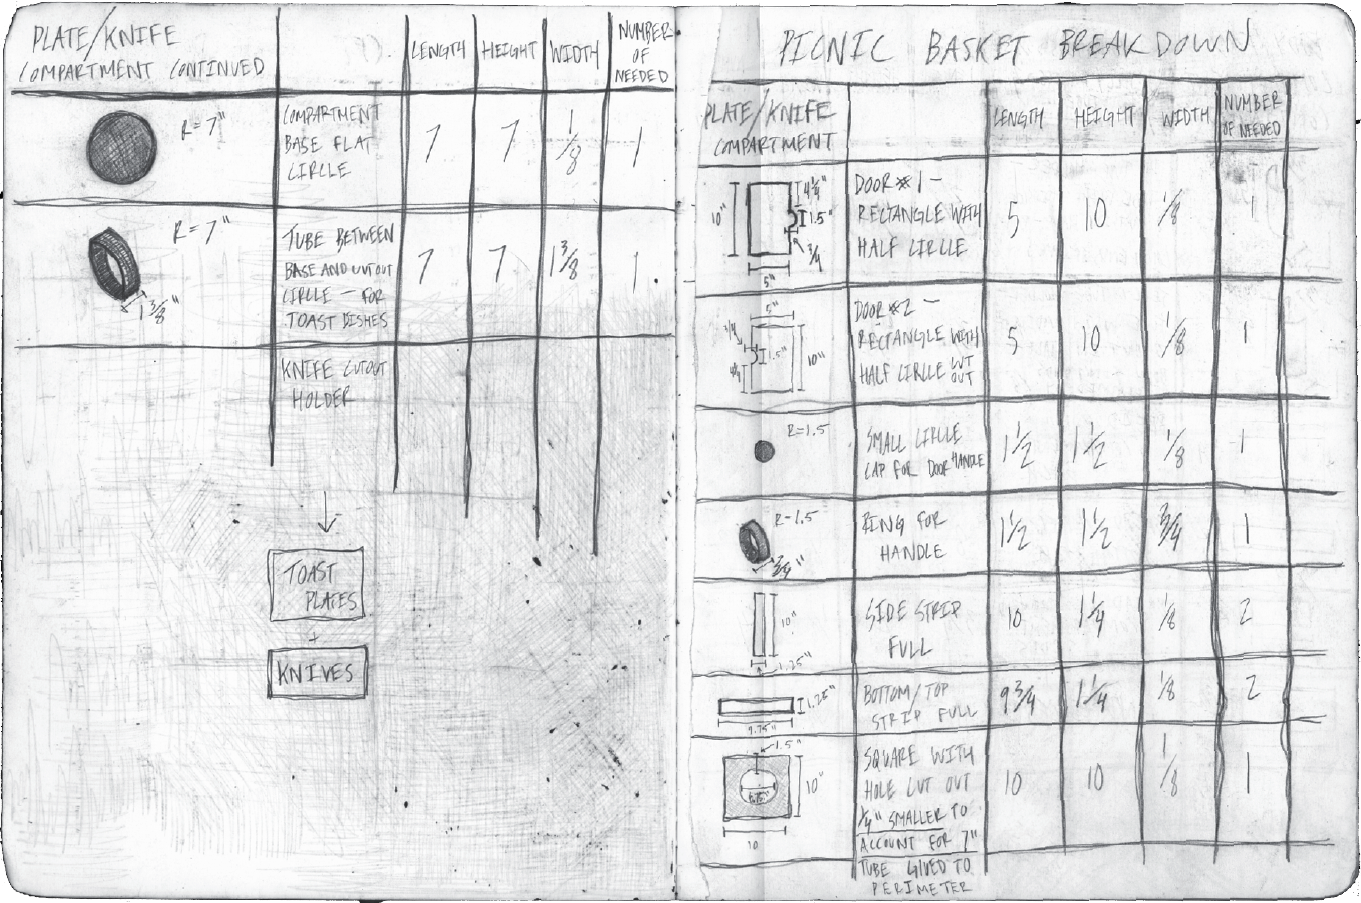 PLATE/KNIFE
COMPARTMENT CONTINUED
LENGTH HEIGHT WIDTH NUMBER
OF
NEEDED
R=7"
COMPARTMENT
BASE FLAT
CIRCLE
7 7 1/8 1
R=7"
1 3/8"
TUBE BETWEEN
BASE AND CUTOUT
CIRCLE — FOR
TOAST DISHES
7 7 1 3/8 1
KNIFE CUTOUT
HOLDER
TOAST
PLATES
+
KNIVES
PICNIC BASKET BREAKDOWN
PLATE/KNIFE
COMPARTMENT
LENGTH HEIGHT WIDTH NUMBER
OF NEEDED
10"
4 1/4"
1.5"
3/4
5"
DOOR #1 —
RECTANGLE WITH
HALF CIRCLE
5 10 1/8 1
5"
3/4
1.5"
10"
4 1/4
DOOR #2 —
RECTANGLE WITH
HALF CIRCLE CUT
OUT
5 10 1/8 1
R=1.5
SMALL CIRCLE
CAP FOR DOOR HANDLE
1 1/2 1 1/2 1/8 1
R=1.5
3/4"
RING FOR
HANDLE
1 1/2 1 1/2 3/4 1
10"
1.25"
SIDE STRIP
FULL
10 1 1/4 1/8 2
1.25"
9.75"
BOTTOM/TOP
STRIP FULL
9 3/4 1 1/4 1/8 2
1.5"
10"
10
SQUARE WITH
HOLE CUT OUT
1/4" SMALLER TO
ACCOUNT FOR 7"
TUBE GLUED TO
PERIMETER
10 10 1/8 1